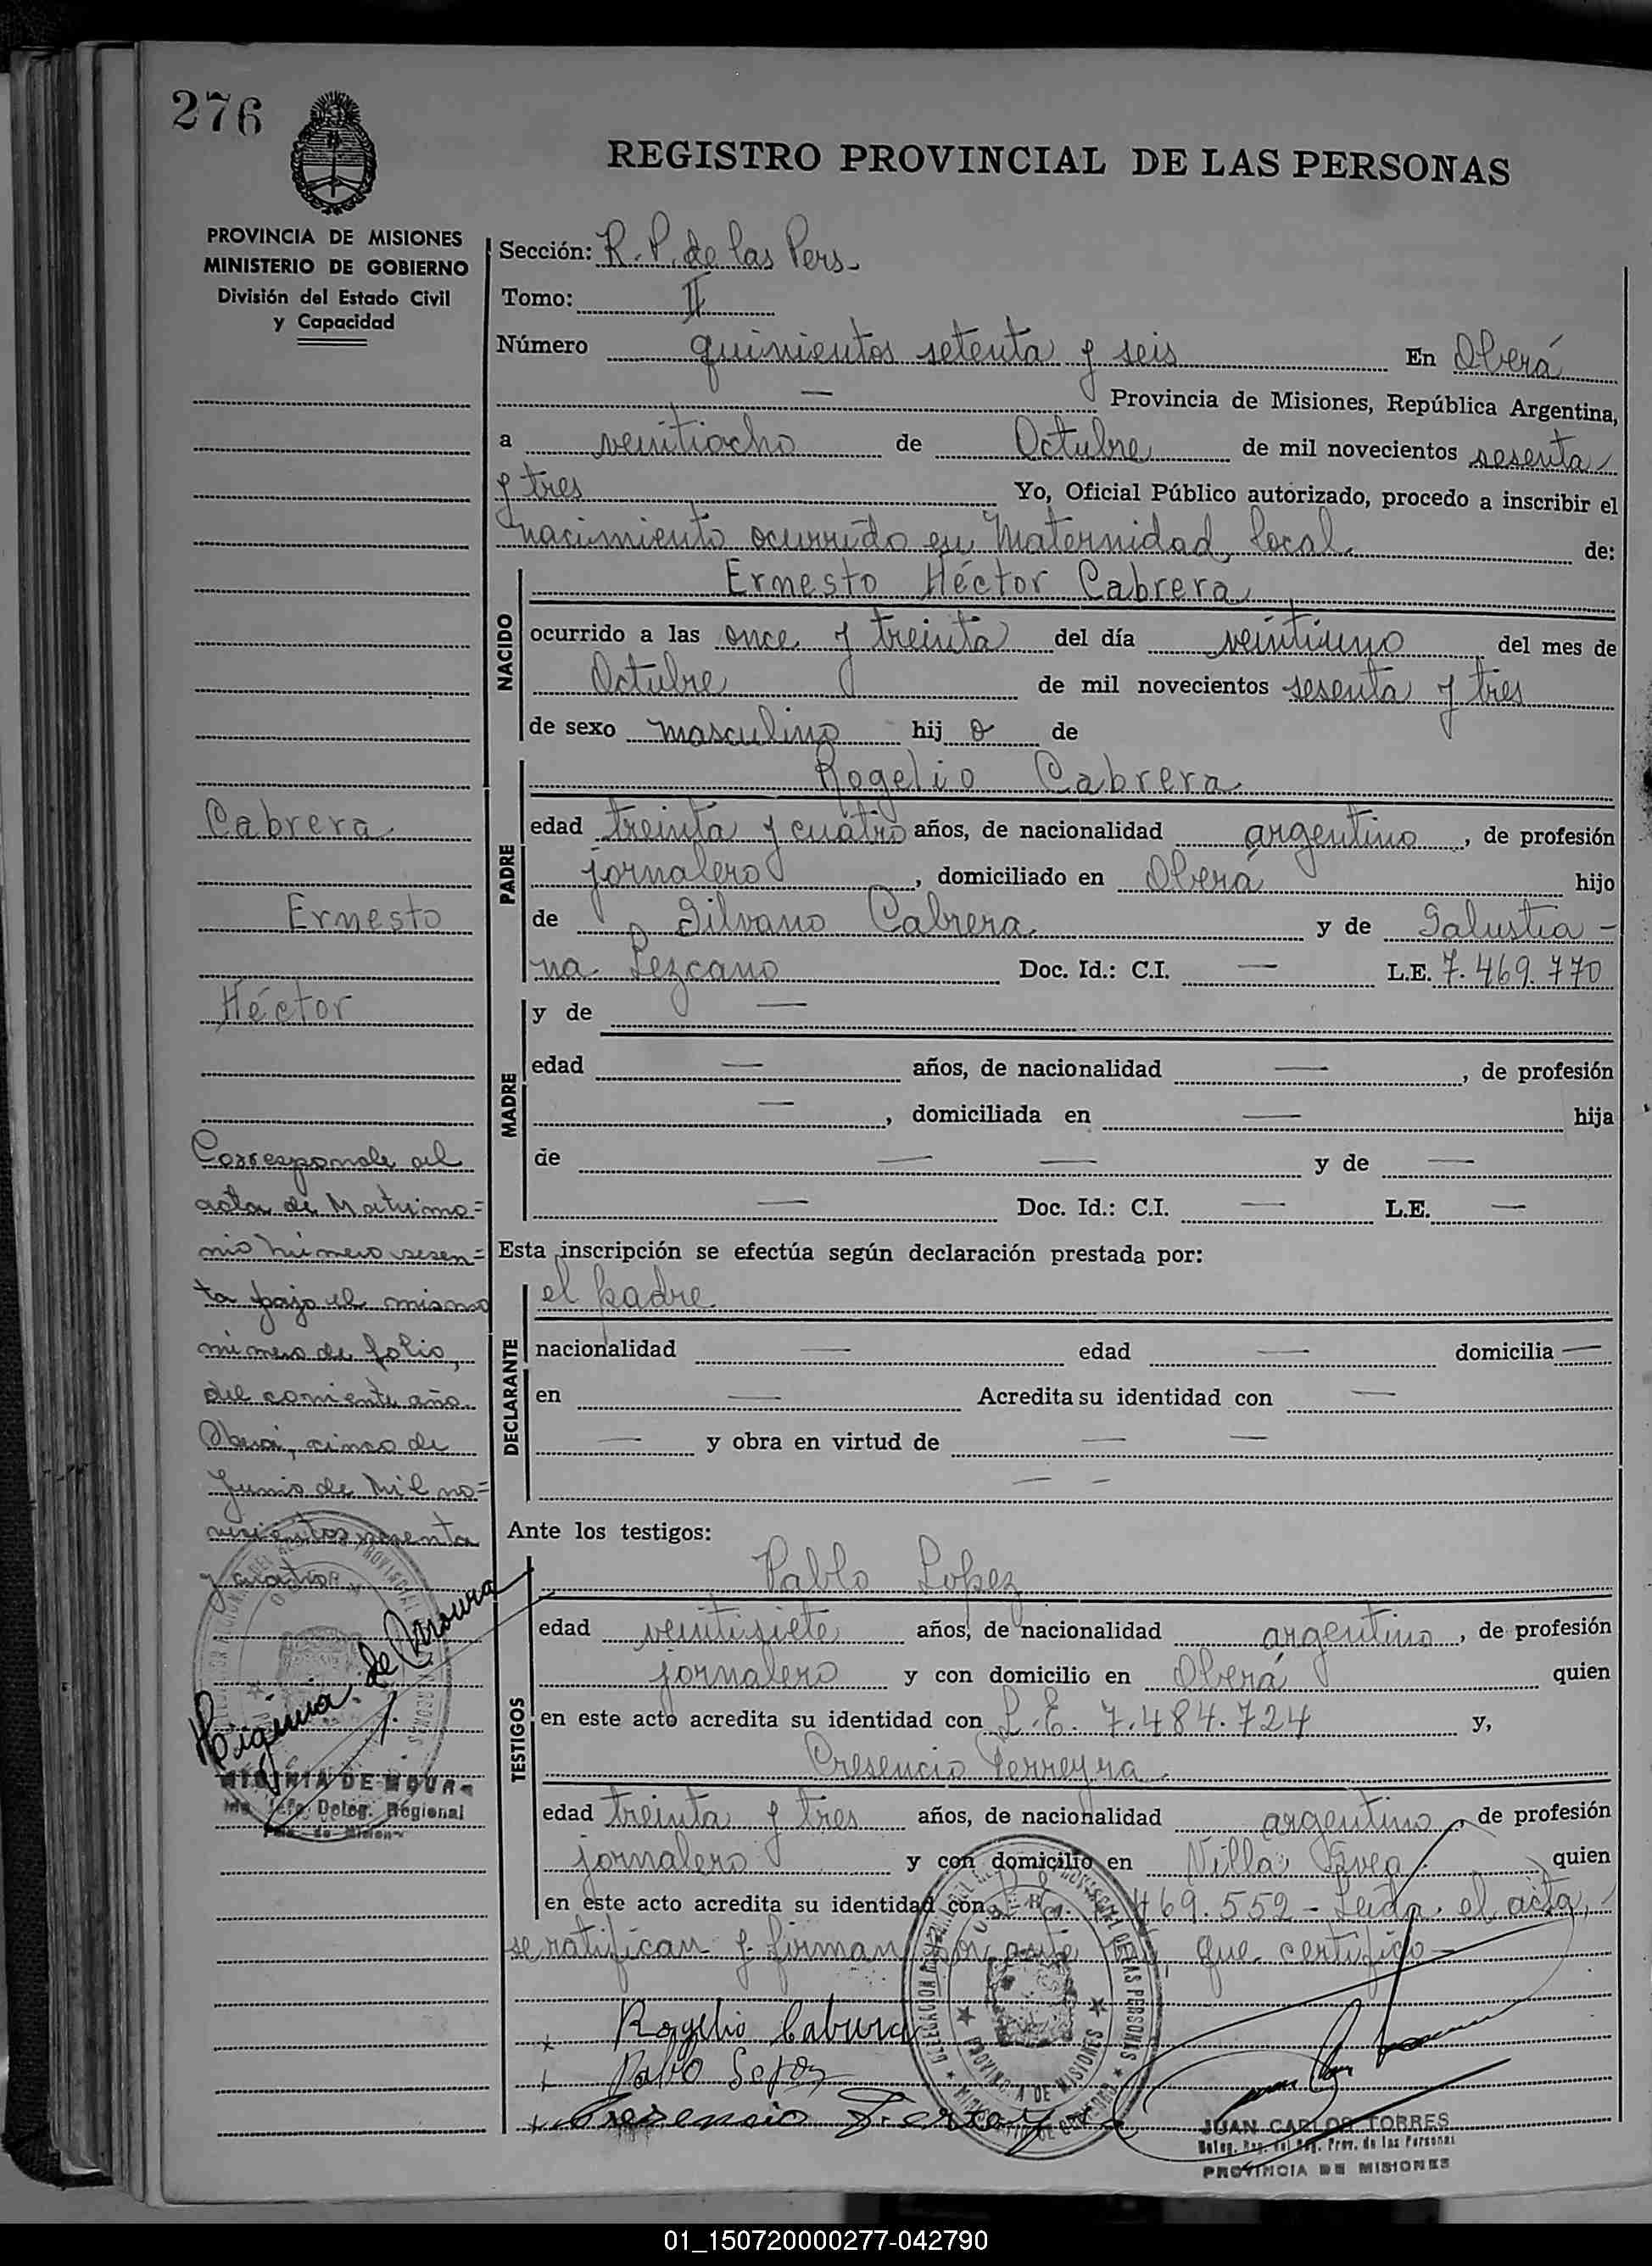 276
REGISTRO PROVINCIAL DE LAS PERSONAS
PROVINCIA DE MISIONES
MINISTERIO DE GOBIERNO
División del Estado Civil
y Capacidad
Sección: R. P. de las Pers.
Tomo: II
Número quinientos setenta y seis En Oberá
— Provincia de Misiones, República Argentina,
a veintiocho de Octubre de mil novecientos sesenta
y tres Yo, Oficial Público autorizado, procedo a inscribir el
nacimiento ocurrido en Maternidad local. de:
NACIDO
Ernesto Héctor Cabrera
ocurrido a las once y treinta del día veintiuno del mes de
Octubre de mil novecientos sesenta y tres
de sexo masculino hij o de
PADRE
Rogelio Cabrera
edad treinta y cuatro años, de nacionalidad argentino, de profesión
jornalero, domiciliado en Oberá hijo
de Silvano Cabrera y de Salustia-
na Lezcano Doc. Id.: C.I. — L.E. 7.469.770
MADRE
y de —
edad — años, de nacionalidad —, de profesión
—, domiciliada en — hija
de — — y de —
— Doc. Id.: C.I. — L.E. —
Esta inscripción se efectúa según declaración prestada por:
DECLARANTE
el padre.
nacionalidad — edad — domicilia —
en — Acredita su identidad con —
— y obra en virtud de — —
— –
Ante los testigos:
TESTIGOS
Pablo Lopez
edad veintisiete años, de nacionalidad argentino, de profesión
jornalero y con domicilio en Oberá quien
en este acto acredita su identidad con L.E. 7.484.724 y,
Cresencio Ferreyra
edad treinta y tres años, de nacionalidad argentino, de profesión
jornalero y con domicilio en Villa quien
en este acto acredita su identidad con 469.552 - Leida el acta,
se ratifican y firman por ante que certifico
Rogelio Cabrera
Pablo Lopez
Cresencio Ferreyra
JUAN CARLOS TORRES
Deleg. Reg. del Reg. Prov. de las Personas
PROVINCIA DE MISIONES
DELEGACION REGIONAL DEL REGISTRO PROVINCIAL DE LAS PERSONAS
PROVINCIA DE MISIONES
Cabrera
Ernesto
Héctor
Corresponde al
acta de Matrimo=
nio número sesen=
ta bajo el mismo
número de folio,
del corriente año.
Oberá, cinco de
Junio de Mil no=
vecientos sesenta
y cuatro
Higinia de Moura
HIGINIA DE MOURA
Jefe Deleg. Regional
01_150720000277-042790